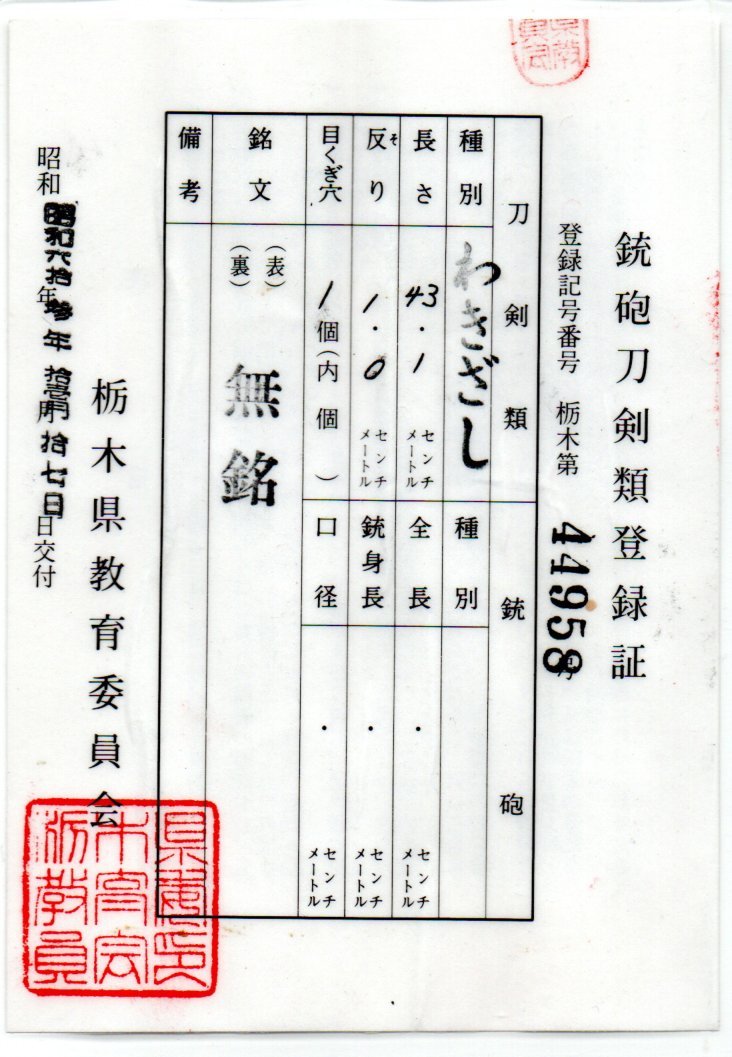 銃砲刀剣類登録証
登録記号番号 栃木第 44958号
刀剣類
銃砲
種別 わきざし
種別
長さ 43.1 センチメートル
全長 ・ センチメートル
反り そ 1.0 センチメートル
銃身長 ・ センチメートル
目くぎ穴 1個(内 個)
口径 ・ センチメートル
銘文 (表)
(裏) 無銘
備考
栃木県教育委員会
昭和 昭和六拾参年 年 拾壹月 月 拾七日 日交付